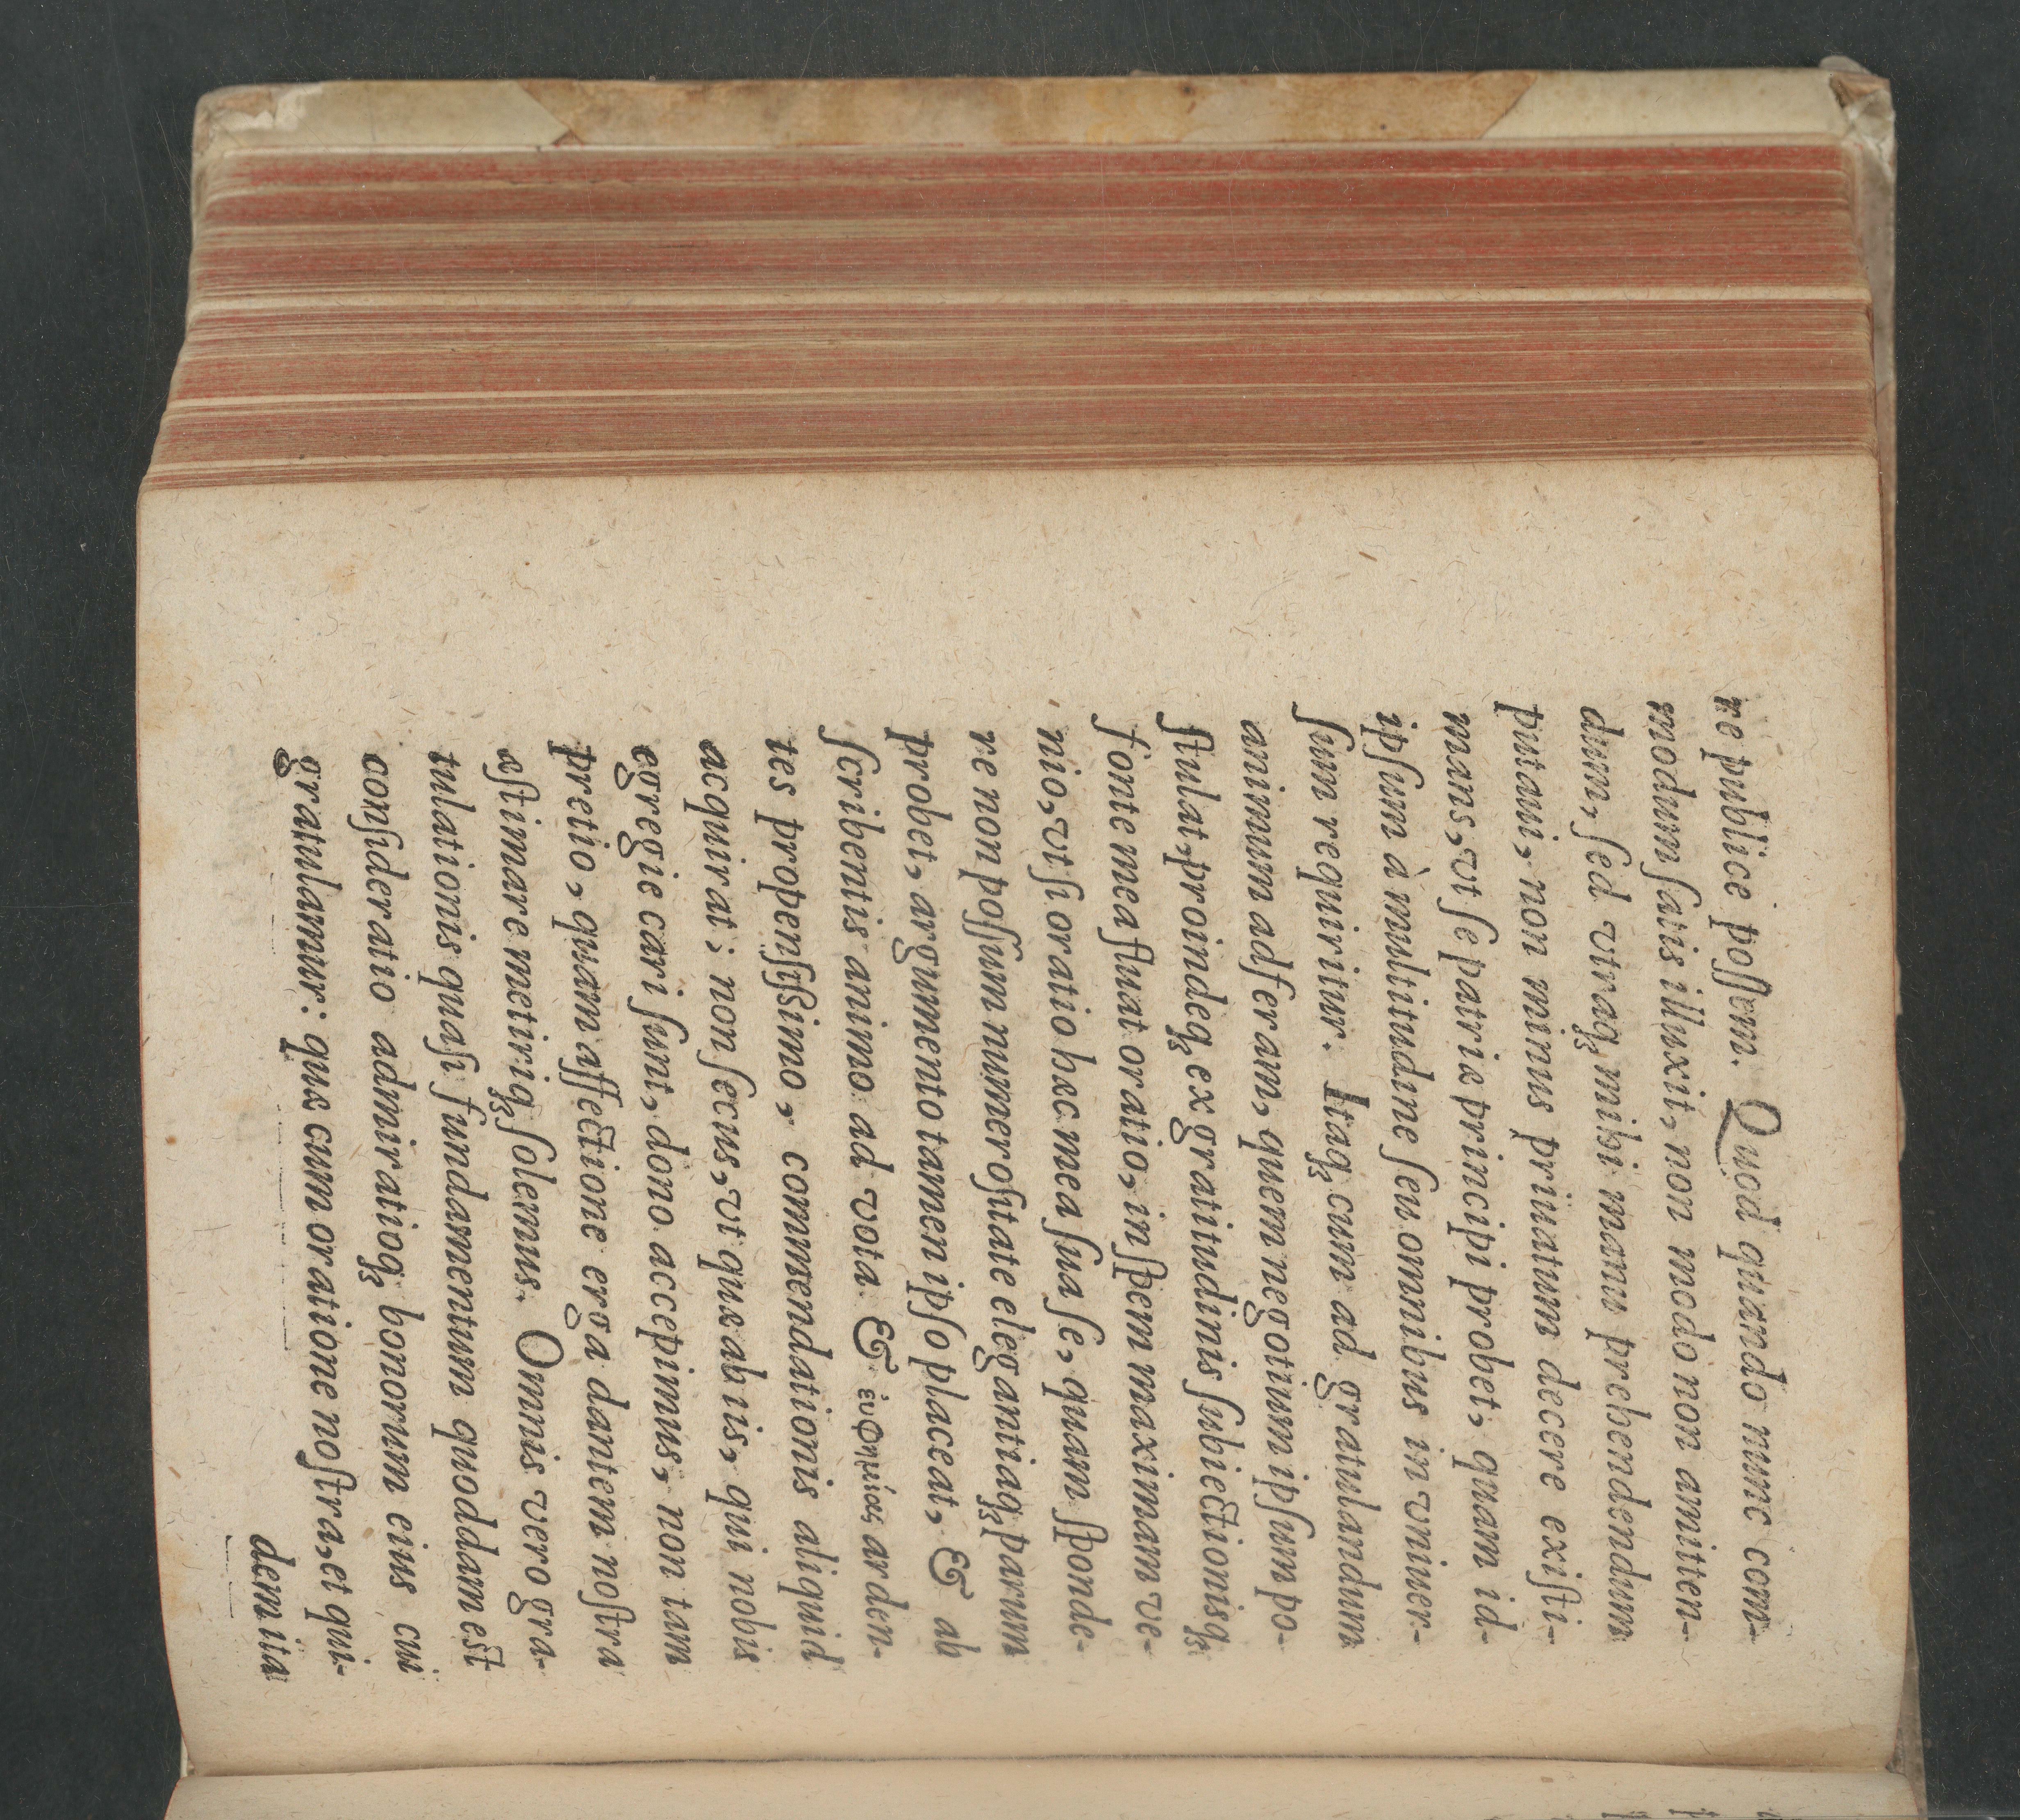 re publicè possem. Quod quando nunc com-
modum ſatis illuxit, non modo non amitten-
dum, ſed vtraq; mihi manu prehendendum
putaui, non minus priuatum decere exiſti-
mans, vt ſe patriæ principi probet, quam id-
ipſum à multitudine ſeu omnibus in vniuer-
ſum requiritur. Itaq; cum ad gratulandum
animum adferam, quem negotium ipſum po-
ſtulat, proindeq; ex gratitudinis ſubiectionisq;
fonte mea fluat oratio, in ſpem maximam ve-
nio, vt ſi oratio hæc mea ſua ſe, quam ſponde-
re non poſſum numeroſitate elegantiaq; parum
probet, argumento tamen ipſo placeat, & ab
ſcribentis animo ad vota & ἐυφημίας arden-
tes propenſiſsimo, commendationis aliquid
acquirat: non ſecus, vt quæ ab iis, qui nobis
egregie cari ſunt, dono accepimus, non tam
pretio, quam affectione erga dantem noſtra
æſtimare metiriq; ſolemus. Omnis vero gra-
tulationis quaſi fundamentum quoddam eſt
conſideratio admiratioq; bonorum eius cui
gratulamur: quæ cum oratione noſtra, et qui-
dem ita